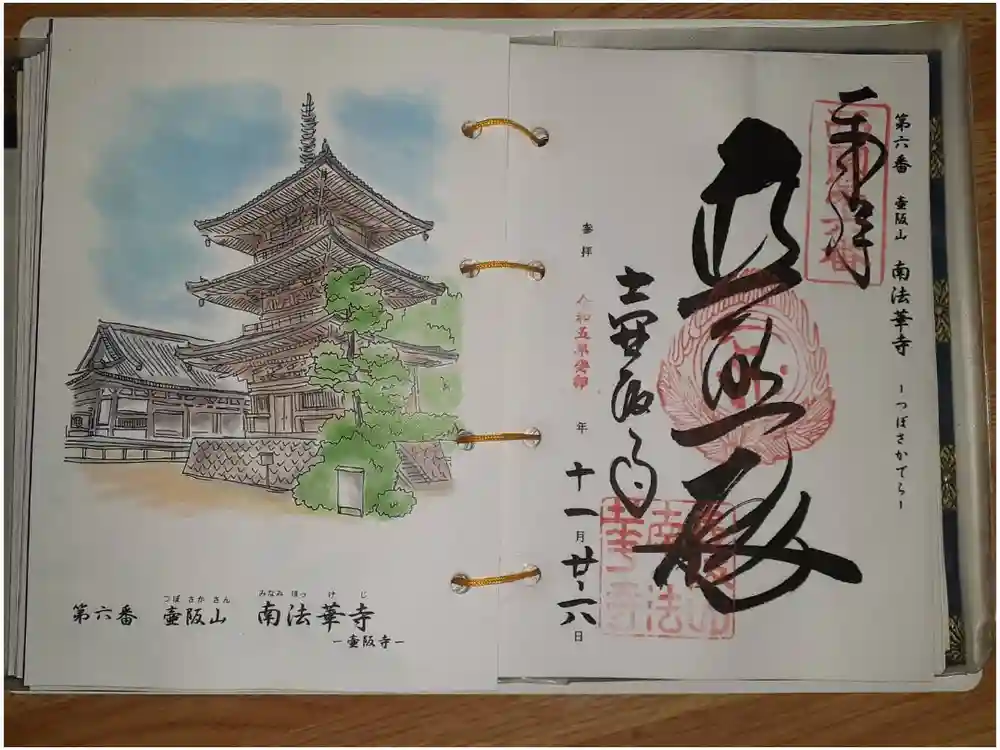 つぼ さか さん みなみ ほっ け じ
第六番 壺阪山 南法華寺
ー壺阪寺ー
第六番 壺阪山 南法華寺 ーつぼさかでらー
奉拝
普照殿
壺阪寺
参拝 令和五 癸卯 年 十一月廿六日